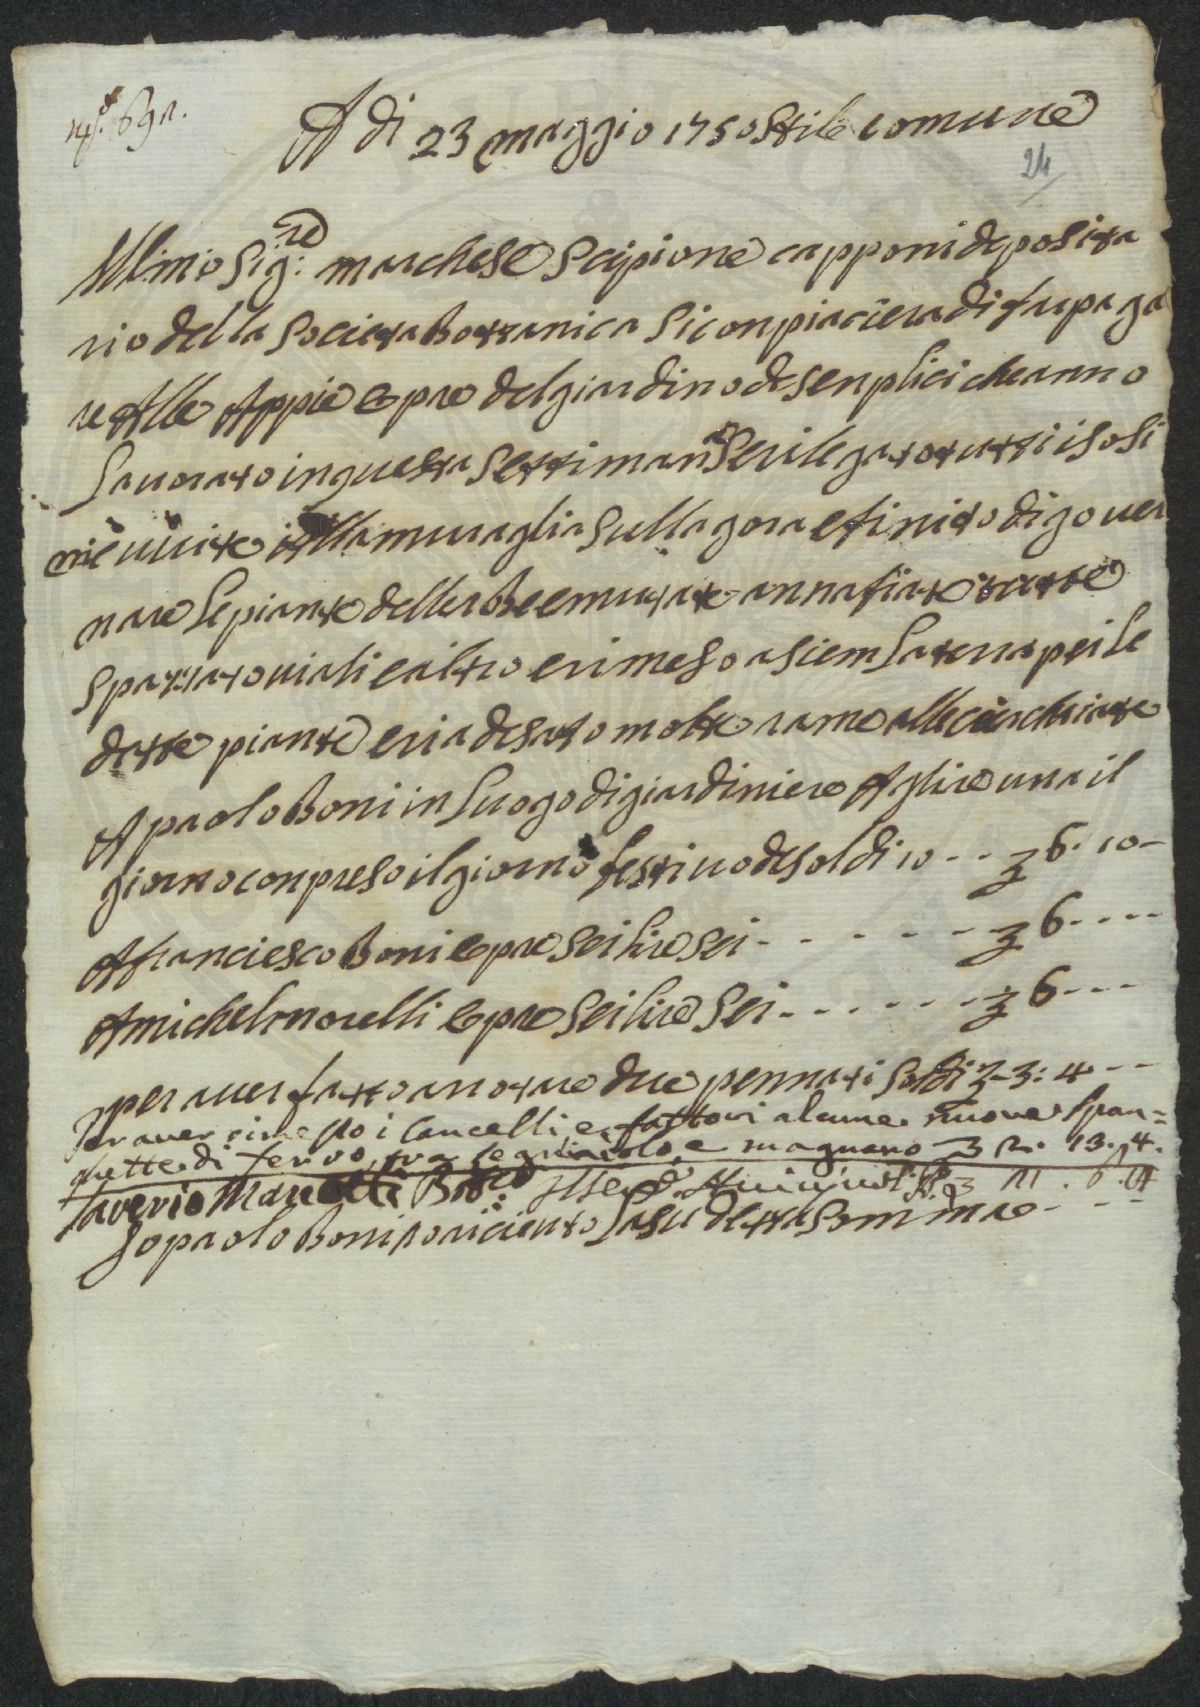 A di 23 maggio 1750 stile comune
24
Ill:mo Sig:re marchese Scipione capponi deposita
rio della Societa Bottanica Si conpiaciera di far paga
re Alle Appie epre del giardino de Senplici che anno
Lauorato in questa Settimana Se rilegato tutti i sosi
ni e uuite alla muraglia Sulla gora e finito di gouer
nare Le piante dell erbe e mutate annafiate tutte
Spazzato uiali e altro e rimeso asiem La terra pei Le
dette piante e ria desato molte rame alle cierchiate
A paolo Boni in Luogo di giardiniere A glire una il
giorno conpreso il giorno festiuo de soldi 10 - - £ 6. 10 -
A franciesco Boni epre Sei lire Sei - - - - - - £ 6 - - - -
A michel morelli epre Sei lire Sei - - - - - - £ 6 - - -
per auer fatto arotare due pennati Soldi £ - 3: 4 - - -
Per aver rimesso i Cancelli e fattovi alcune nuove Span=
dutte di ferro, tra legniaiolo, e magnano £ 2. 13. 4.
Saverio Manetti
Io paolo Boni o riceuto La su detta Somma - - -